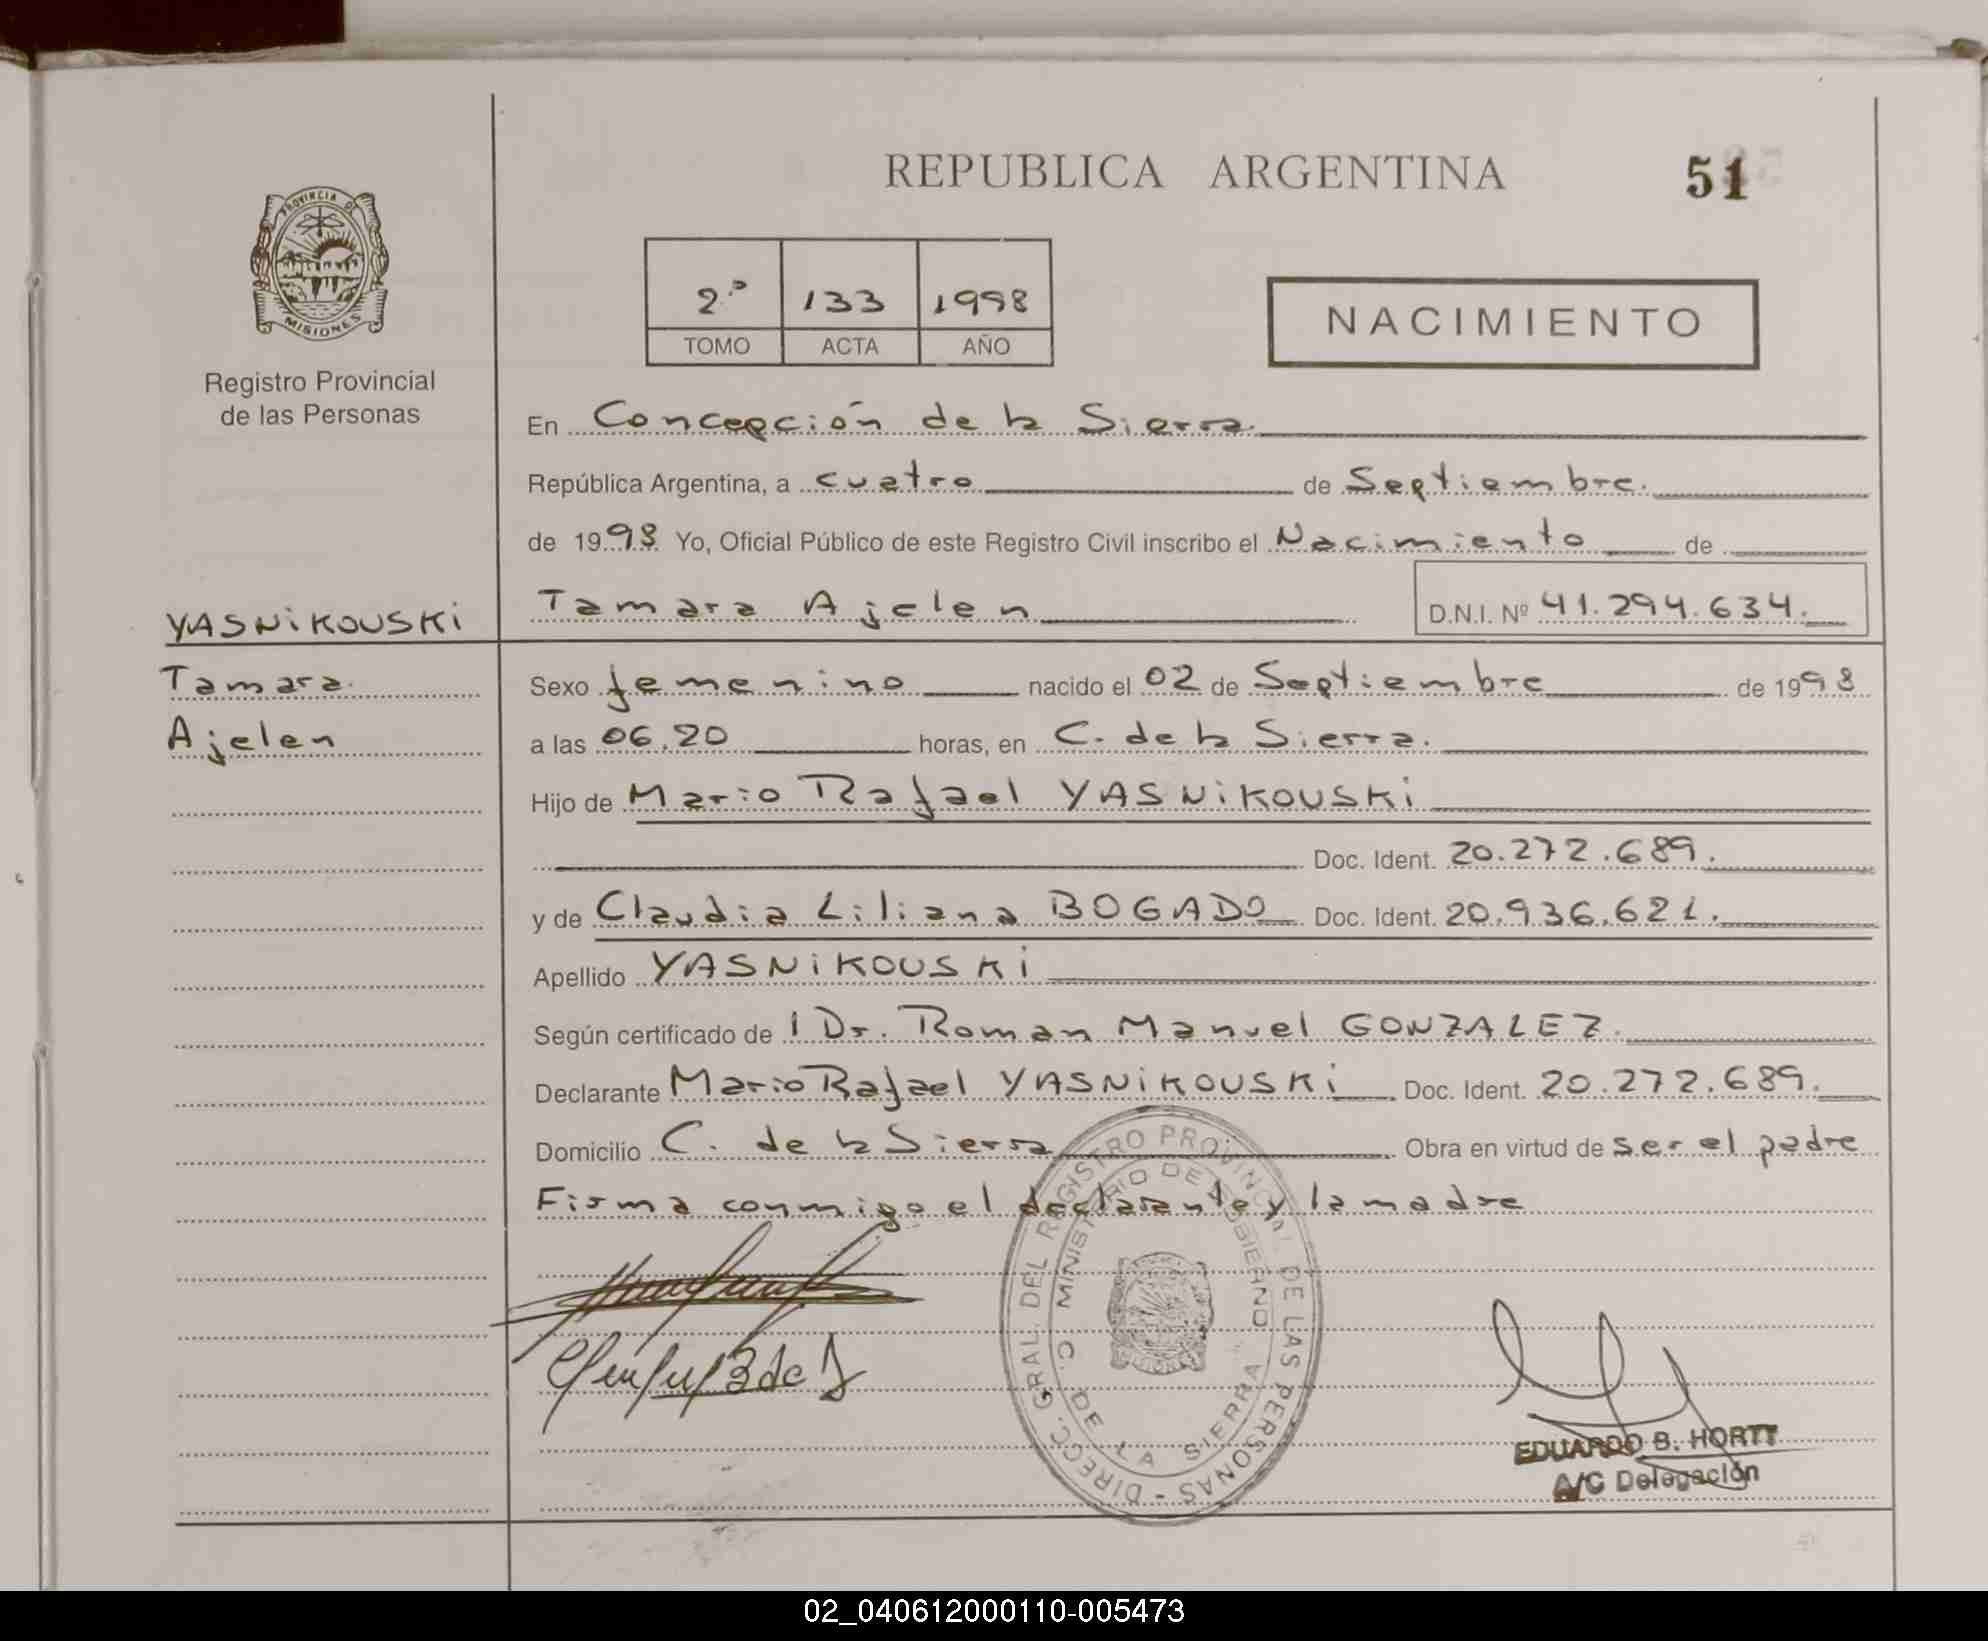 REPUBLICA ARGENTINA
51
PROVINCIA DE
MISIONES
Registro Provincial
de las Personas
2º 133 1998
TOMO ACTA AÑO
NACIMIENTO
En Concepción de la Sierra
República Argentina, a cuatro de Septiembre.
de 1998 Yo, Oficial Público de este Registro Civil inscribo el Nacimiento de
YASNiKOUSKi
Tamara Ajelen D.N.I. Nº 41.294.634.
Tamara
Ajelen
Sexo femenino nacido el 02 de Septiembre de 1998
a las 06.20 horas, en C. de la Sierra.
Hijo de Mario Rafael YASNiKOUSKi
Doc. Ident. 20.272.689.
y de Claudia Liliana BOGADO Doc. Ident. 20.936.621.
Apellido YASNiKOUSKi
Según certificado de l Dr. Roman Manuel GONZALEZ.
Declarante Mario Rafael YASNiKOUSKi Doc. Ident. 20.272.689.
Domicilio C. de la Sierra Obra en virtud de ser el padre
Firma conmigo el declarante y la madre
DIRECC. GRAL. DEL REGISTRO PROVINCIAL DE LAS PERSONAS -
MINISTERIO DE GOBIERNO
C. DE LA SIERRA
EDUARDO B. HORTT
A/C Delegación
02_040612000110-005473